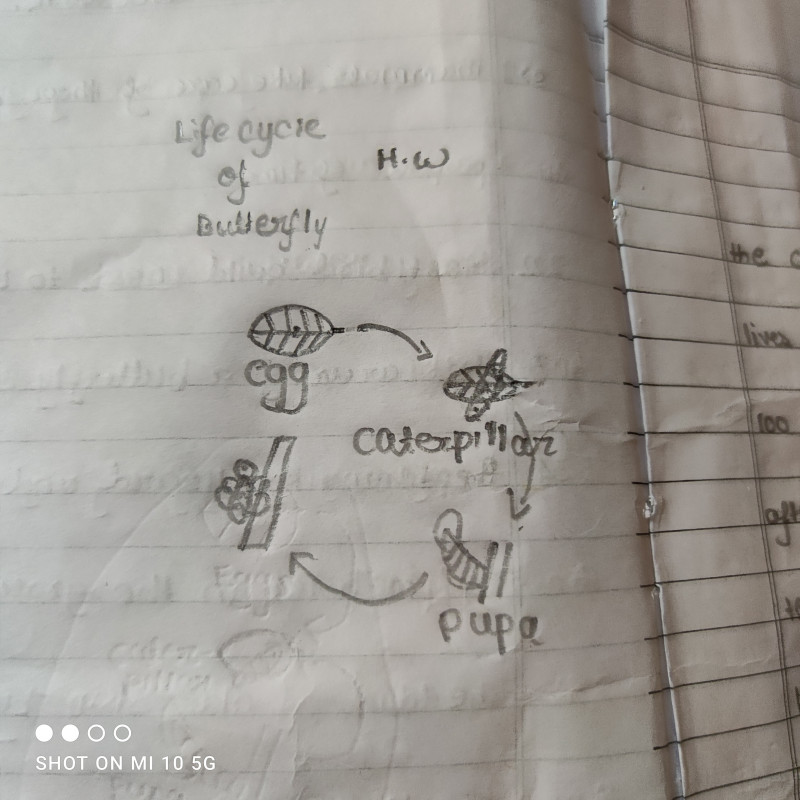 Life cycle
of
Butterfly
H.W
egg
caterpillar
pupa
the
lives
100
SHOT ON MI 10 5G